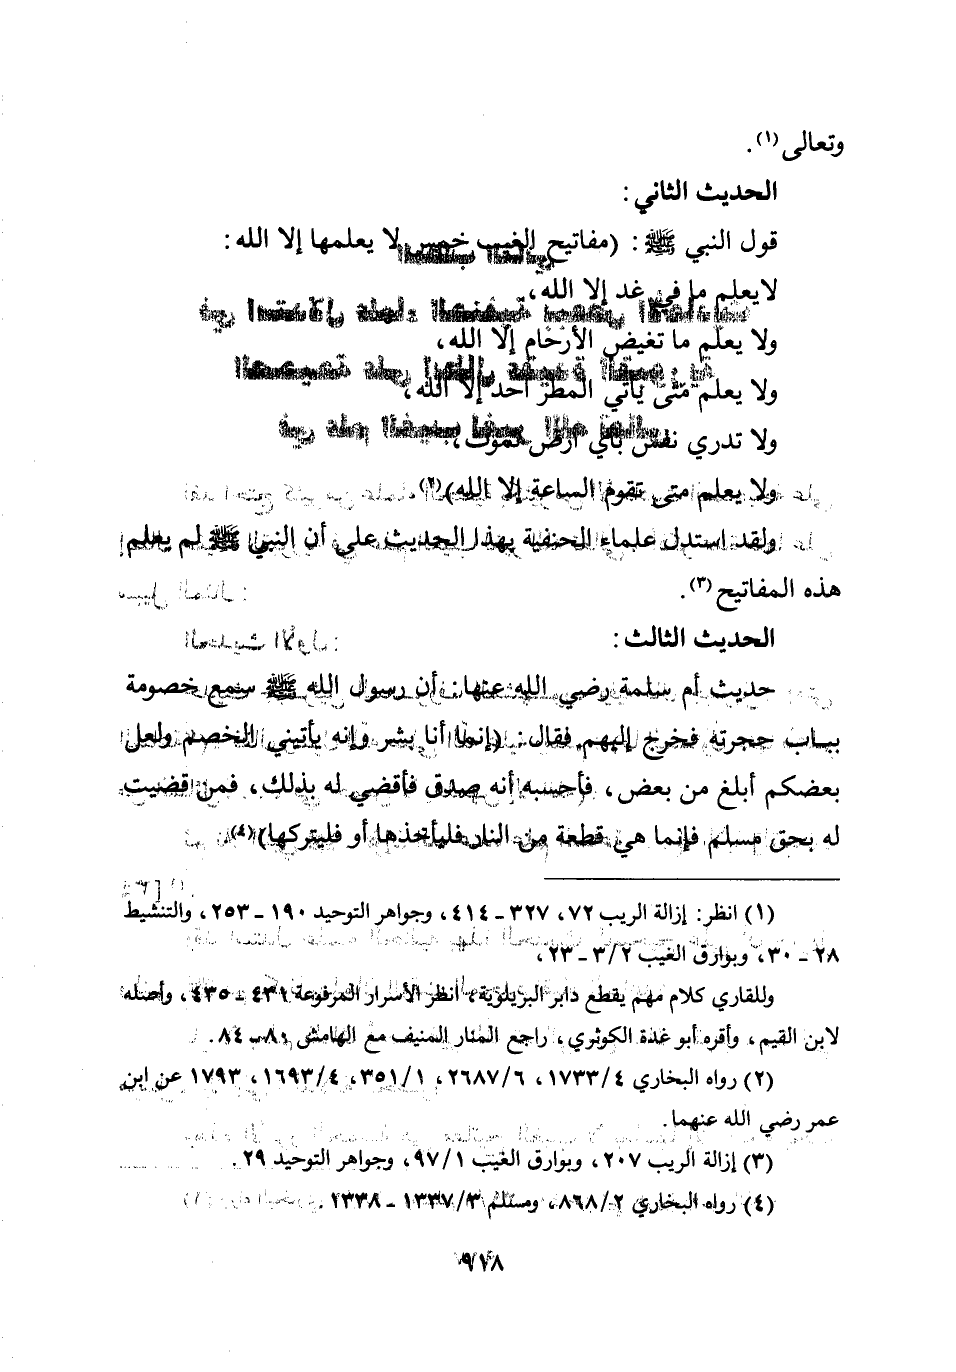 وتعالى(١).
الحديث الثاني:
قول النبي ﷺ: (مفاتيح الغيب خمس لا يعلمها إلا الله:
لايعلم ما في غد إلا الله،
ولا يعلم ما تغيض الأرحام إلا الله،
ولا يعلم متى يأتي المطر أحد إلا الله،
ولا تدري نفس بأي أرض تموت،
ولا يعلم متى تقوم الساعة إلا الله)(٢)
ولقد استدل علماء الحنفية بهذا الحديث على أن النبي ﷺ لم يعلم
هذه المفاتيح(٣).
الحديث الثالث:
حديث أم سلمة رضي الله عنها: أن رسول الله ﷺ سمع خصومة
بباب حجرته فخرج إليهم فقال: (إنما أنا بشر وإنه يأتيني الخصم ولعل
بعضكم أبلغ من بعض، فأحسبه أنه صدق فأقضي له بذلك، فمن قضيت
له بحق مسلم فإنما هي قطعة من النار فليأخذها أو فليتركها)(٤)
(١) انظر: إزالة الريب ٧٢، ٣٢٧ - ٤١٤، وجواهر التوحيد ١٩٠ - ٢٥٣، والتنشيط
٢٨ - ٣٠، وبوارق الغيب ٣/٢ - ٢٣،
وللقاري كلام مهم يقطع دابر البريلوية، انظر الأسرار المرفوعة ٤٣١ - ٤٣٥، وأصله
لابن القيم، وأقره أبو غدة الكوثري، راجع المنار المنيف مع الهامش ٨٠ - ٨٤.
(٢) رواه البخاري ١٧٣٣/٤، ٢٦٨٧/٦، ٣٥١/١، ١٦٩٣/٤، ١٧٩٣ عن ابن
عمر رضي الله عنهما.
(٣) إزالة الريب ٢٠٧، وبوارق الغيب ٩٧/١، وجواهر التوحيد ٢٩.
(٤) رواه البخاري ٨٦٨/٢، ومسلم ١٣٣٧/٣ - ١٣٣٨.